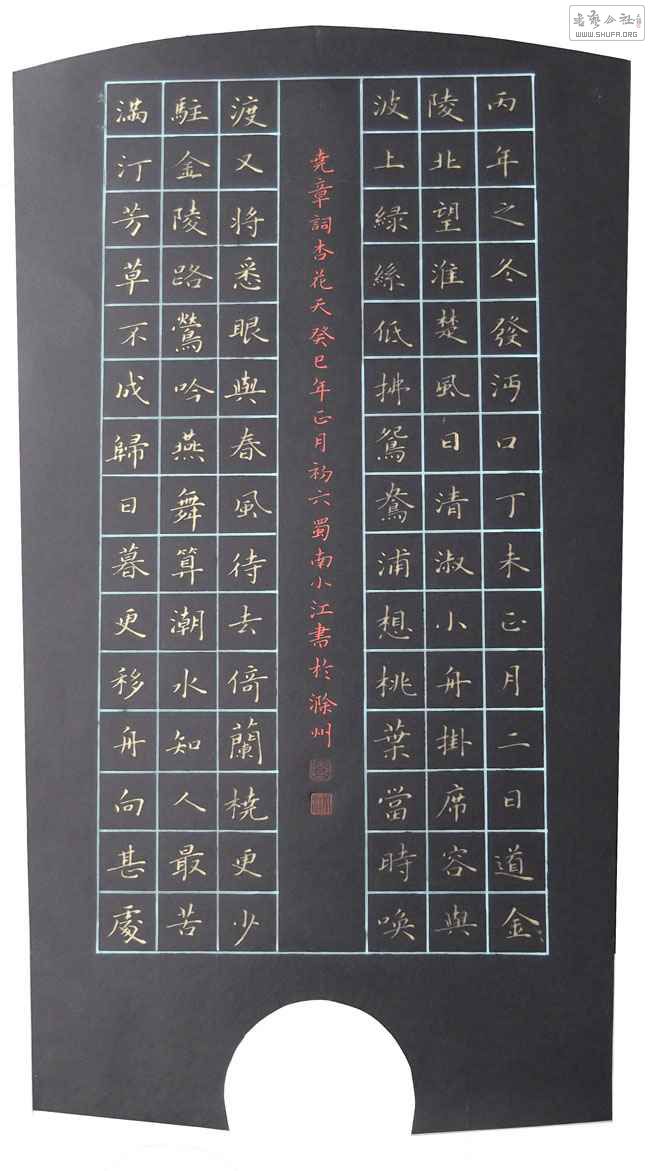 丙年之冬發沔口丁未正月二日道金
陵北望淮楚風日清淑小舟掛席容與
波上綠絲低拂鴛鴦浦想桃葉當時喚
堯章詞杏花天癸巳年正月初六蜀南小江書於滁州
渡又將愁眼與春風待去倚蘭橈更少
駐金陵路鶯吟燕舞算潮水知人最苦
滿汀芳草不成歸日暮更移舟向甚處
WWW.SHUFA.ORG